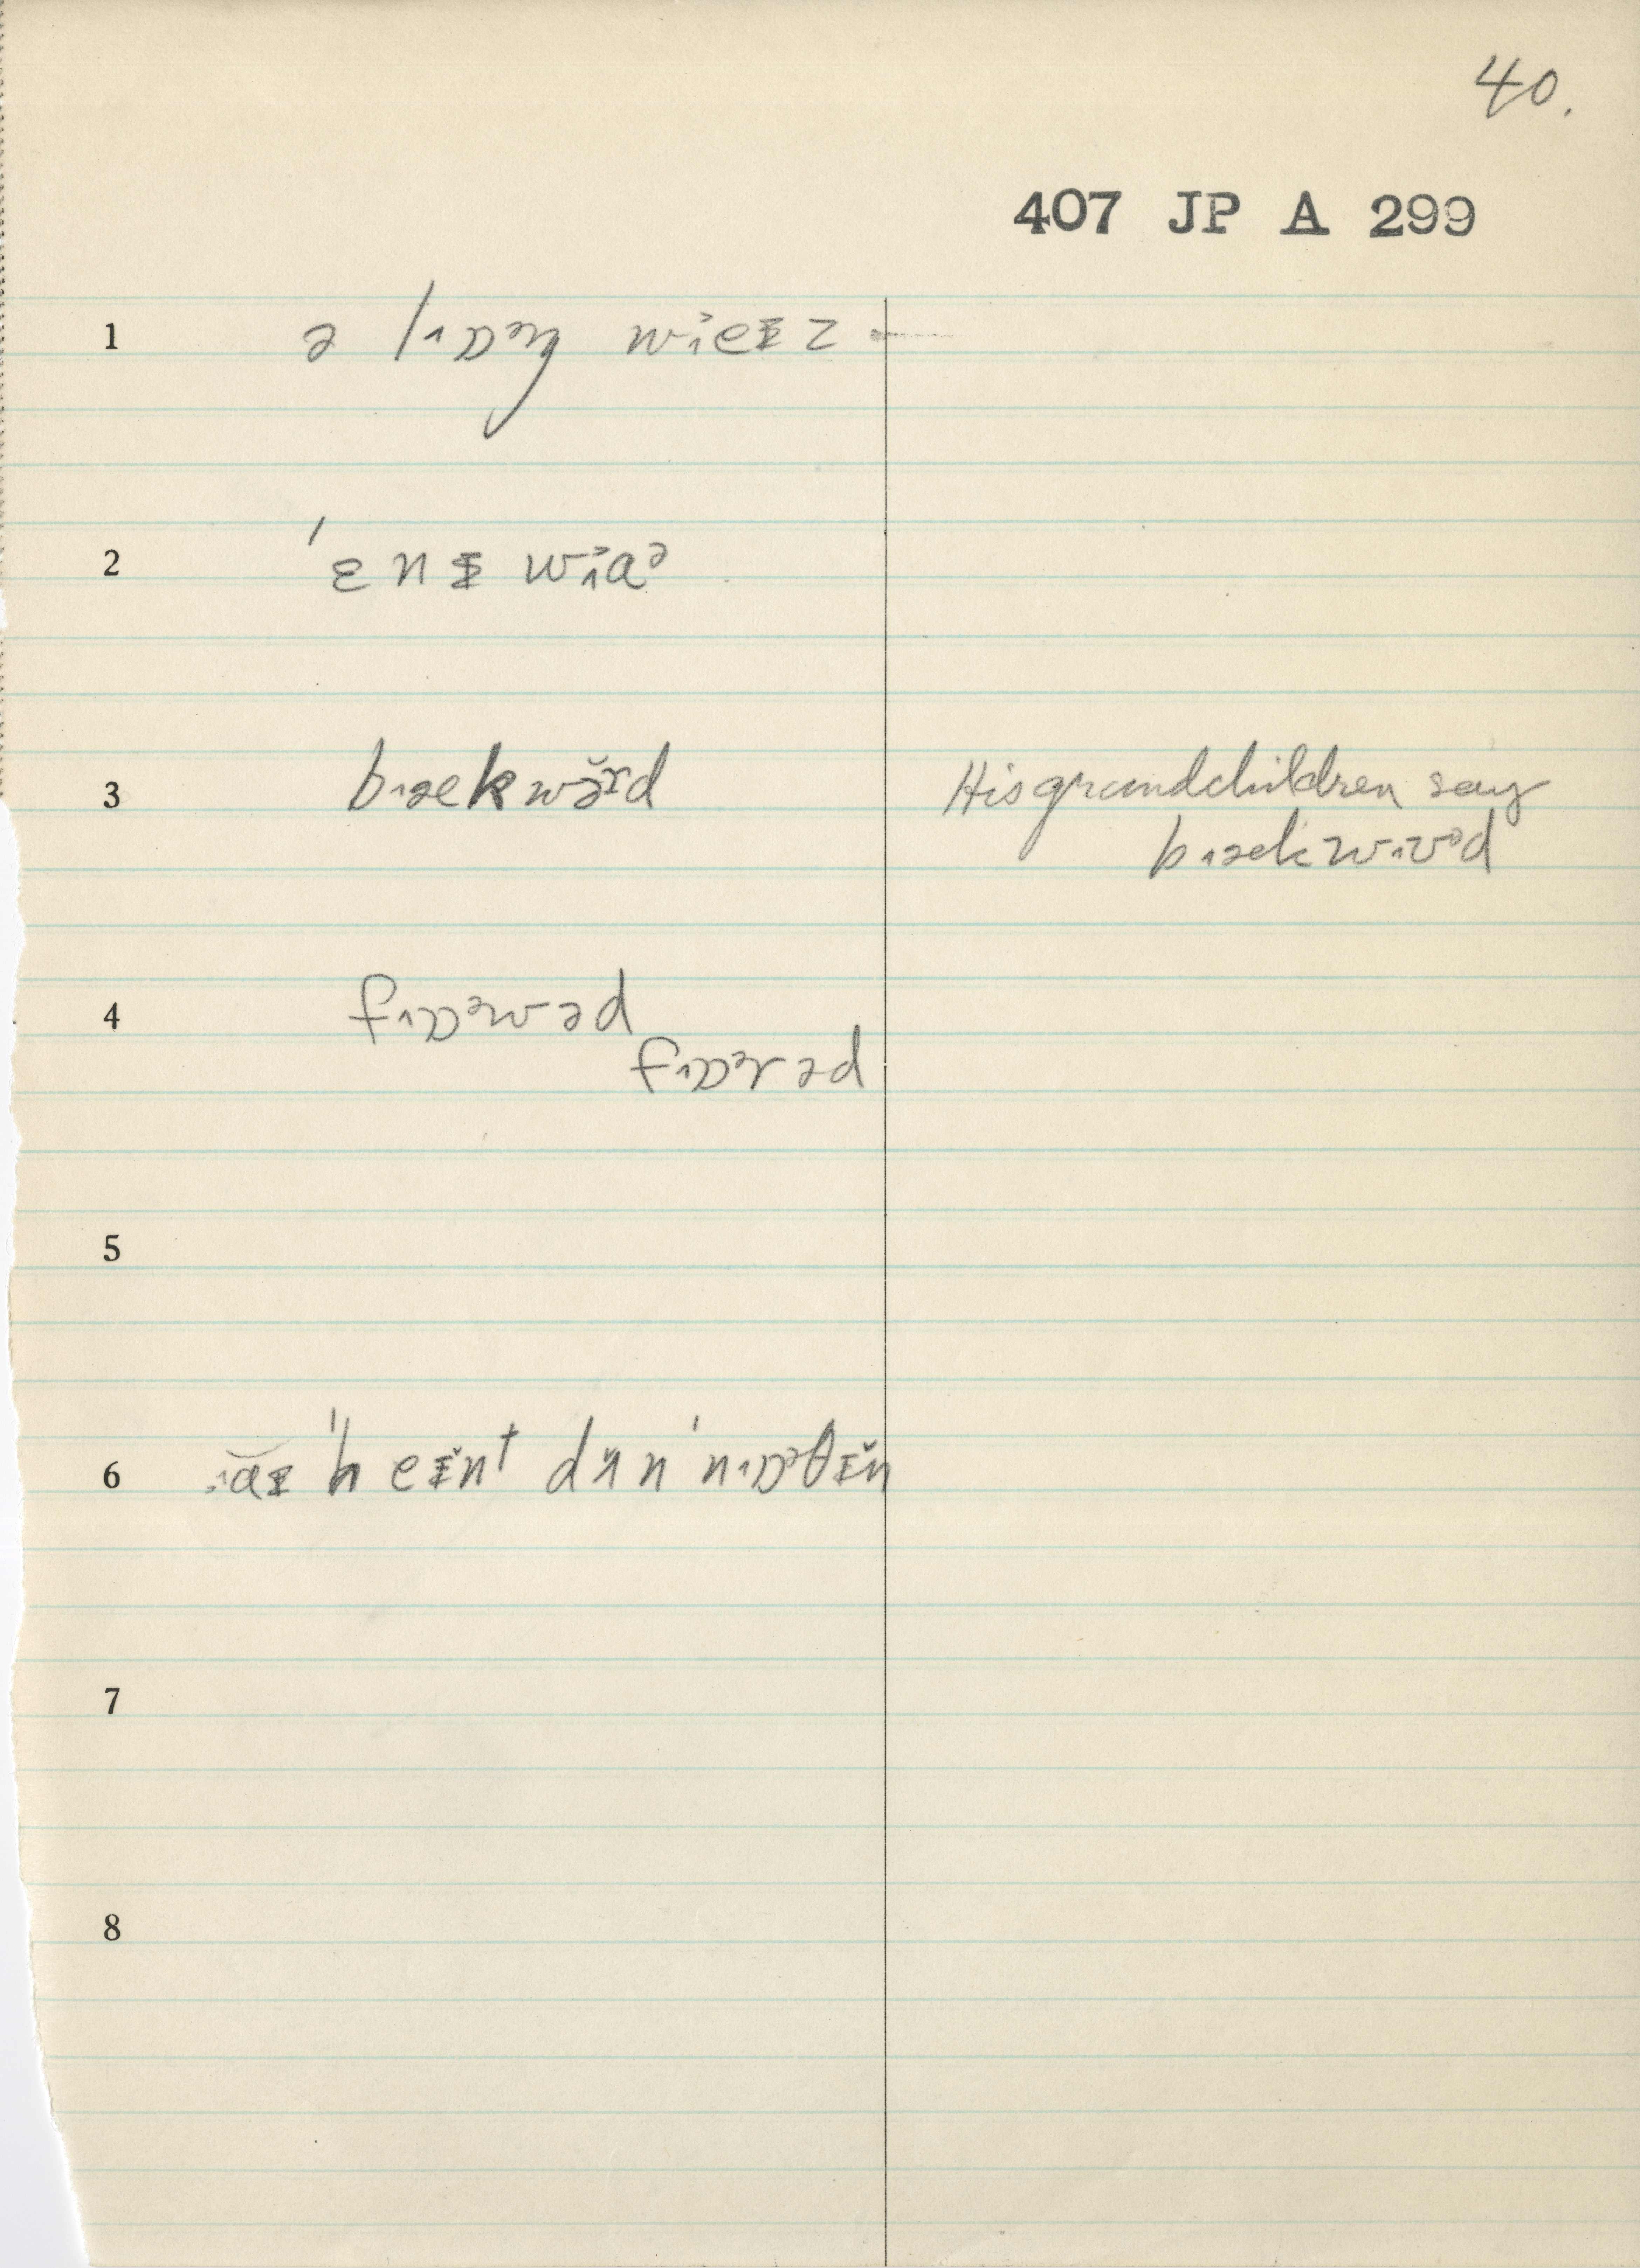 40.
407 JP A 299
1 ə lɒ˄ɒᵊŋ wi˄eɪz
2 ˈɛnɪ wi˄aᵊ
3 bæ˄kwə̆ɚd His grandchildren say
bæ˄kwɜ˄ᵊd
4 fɒ˄ɒᵊwəd
fɒ˄ɒᵊrəd
5
6 aɪ ˈheɪ̆nt dʌ̆n ˈnɒ˄ɒᵊθɪ̆ŋ
7
8